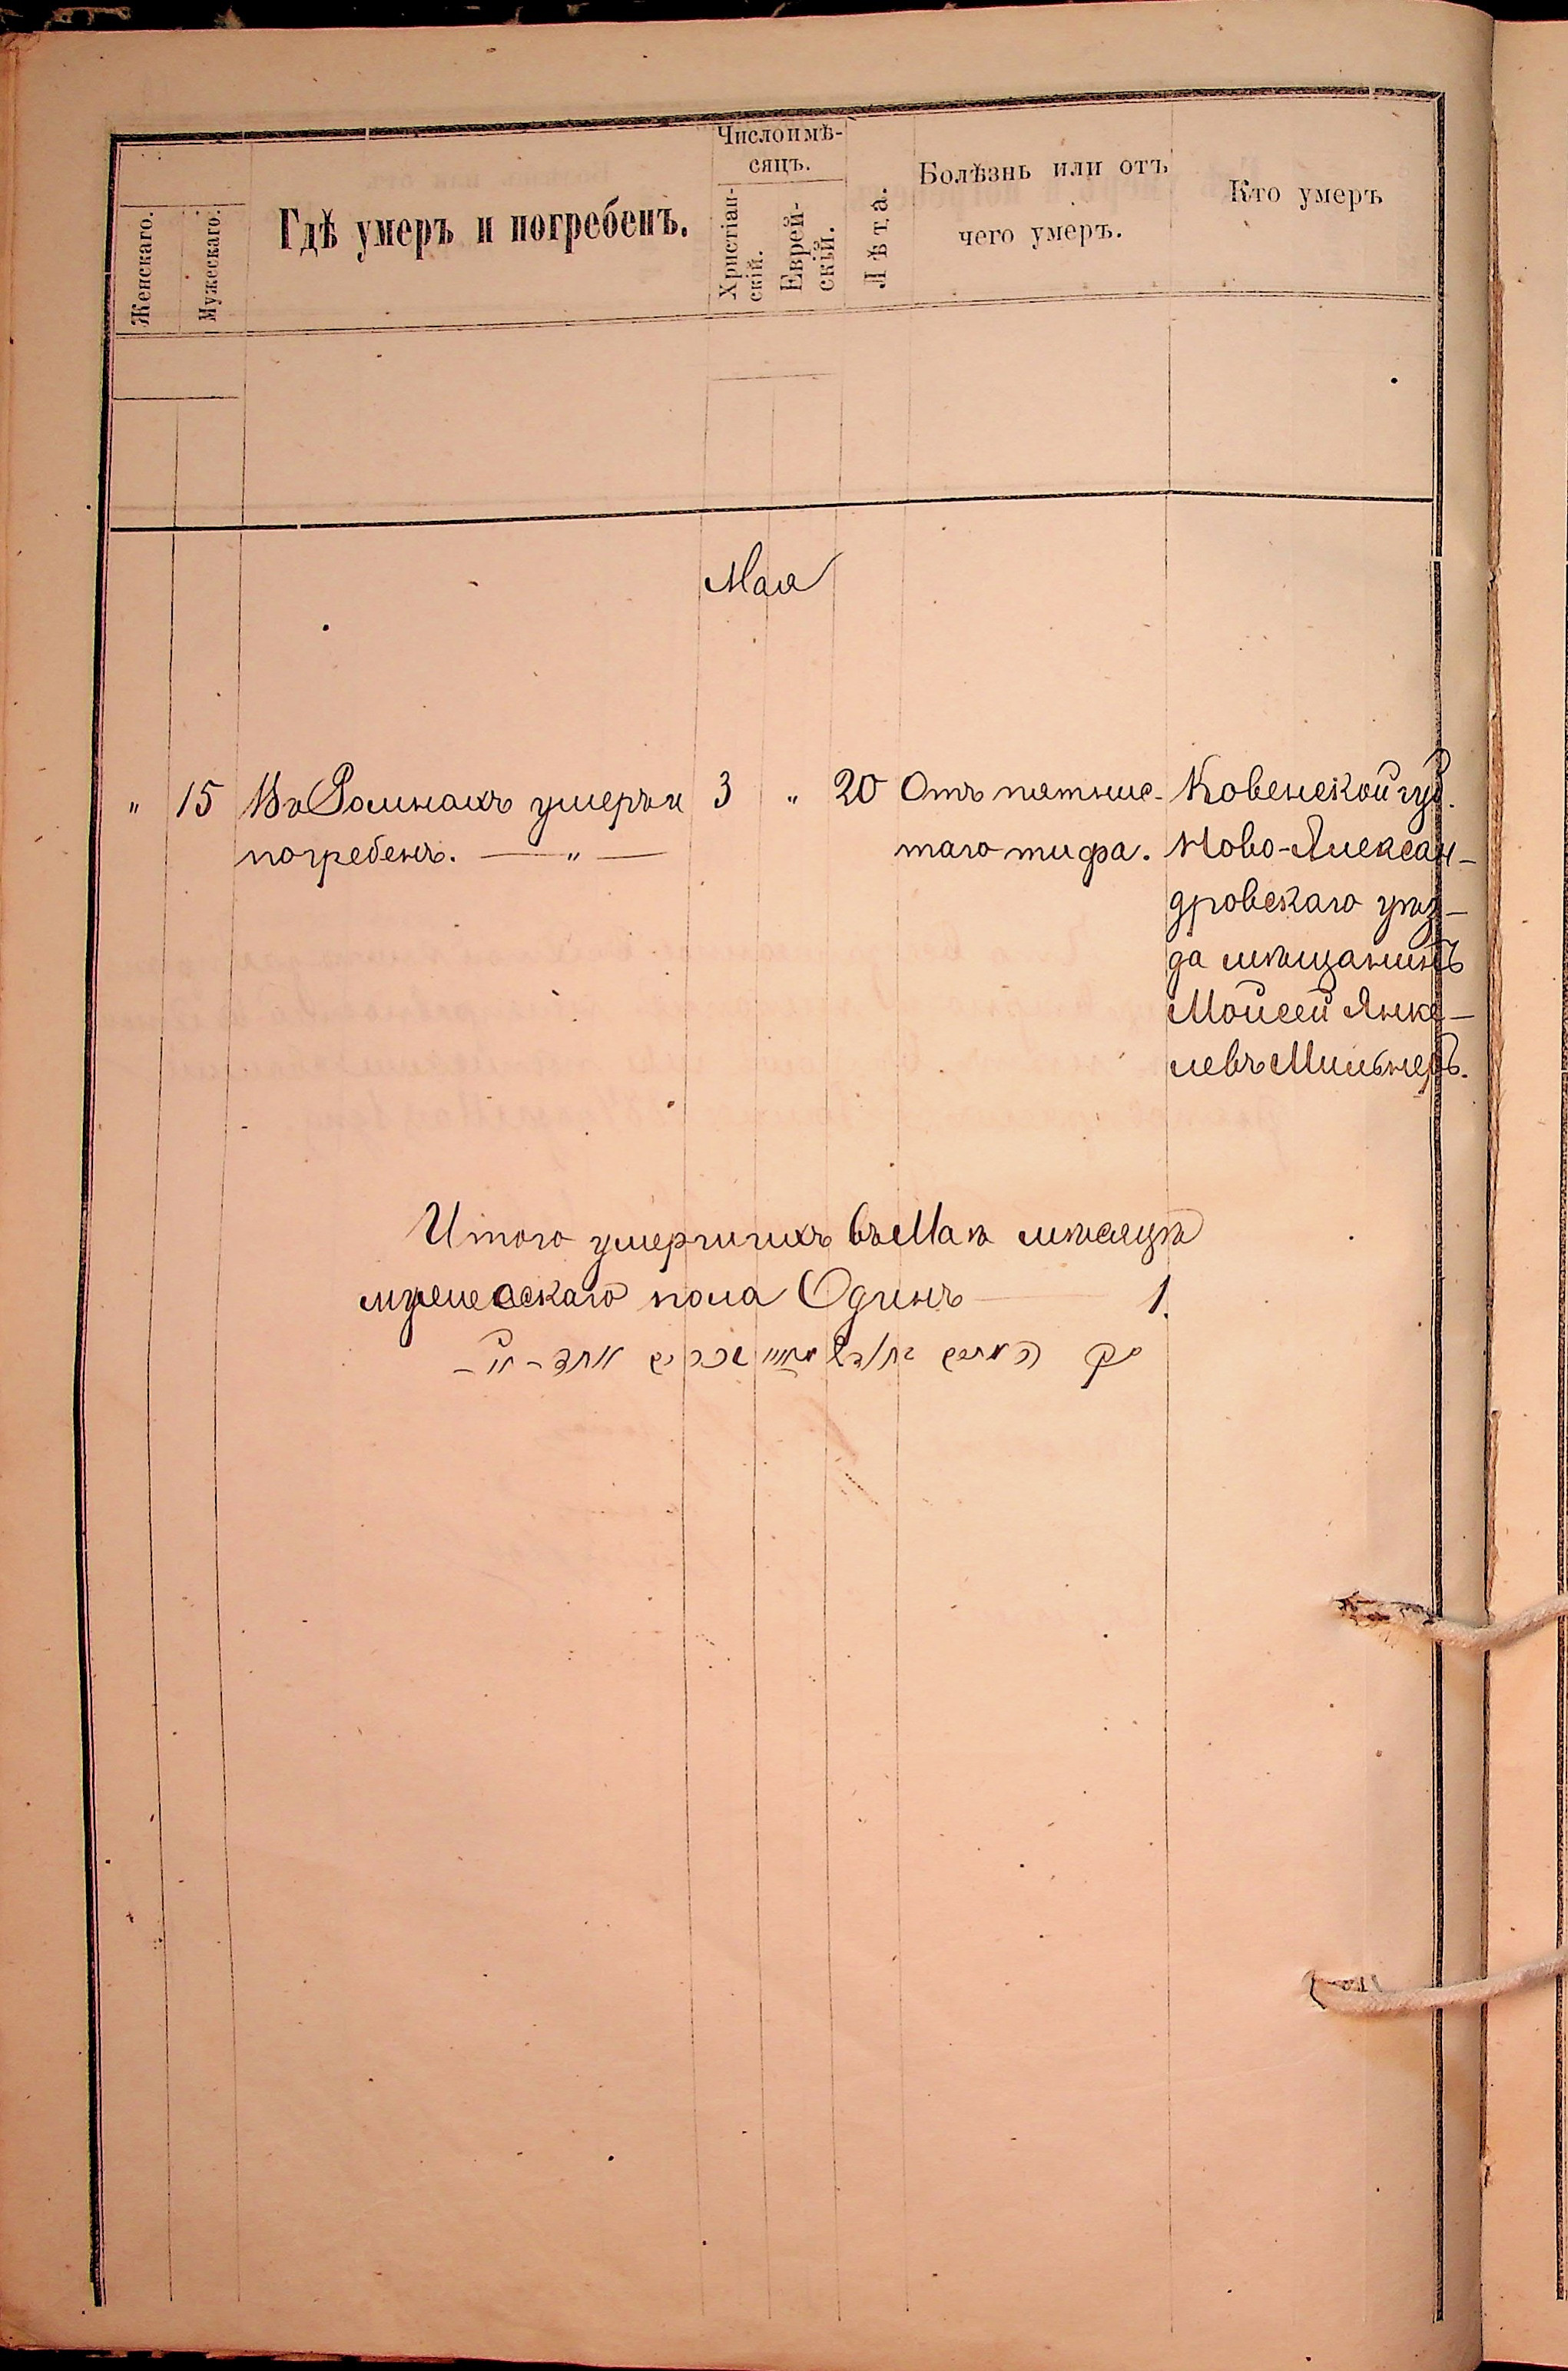 Женскаго.
Мужескаго.
Гдѣ умеръ и погребенъ.
Число и мѣ-
сяцъ.
Христіан-
скій.
Еврей-
скій.
Лѣта.
Болѣзнь или отъ
чего умеръ.
Кто умеръ
Мая
" 15 Въ Ромнахъ умеръ и 3 " 20 Отъ пятнис- Ковенской губ.
погребенъ. — " — таго тифа. Ново-Алексан-
дровскаго уѣз-
да мѣщанинъ
Мойсей Янке-
левъ Мильнеръ.
Итого умершихъ въ Маѣ мѣсяцѣ
мужескаго пола Одинъ — 1.